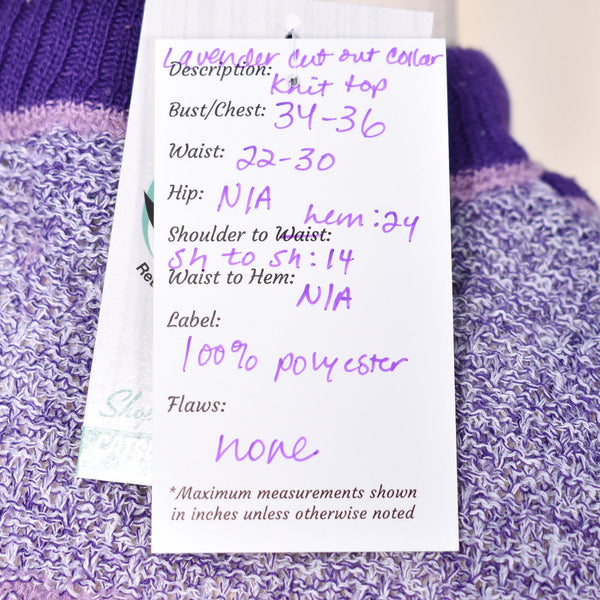 Lavender cut out collar
Description:
Knit top
Bust/Chest: 34-36
Waist: 22-30
Hip: N/A
hem: 24
Shoulder to Waist:
Sh to Sh: 14
Waist to Hem:
N/A
Label:
100% polyester
Flaws:
none
*Maximum measurements shown
in inches unless otherwise noted
Shop